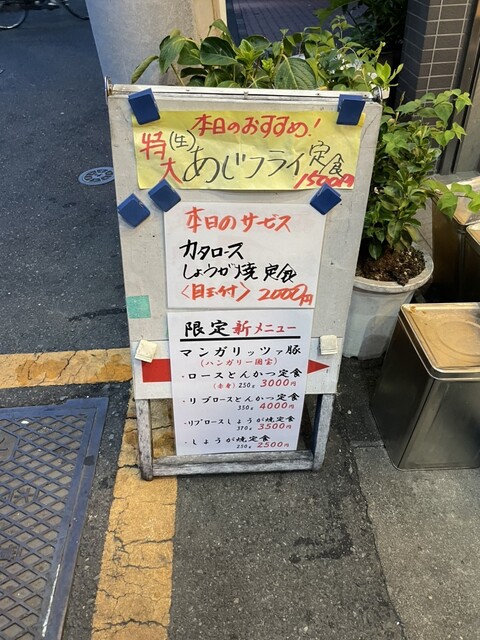 本日のおすすめ!
特大(生)あじフライ定食
1500円
本日のサービス
カタロース
しょうが焼定食
<目玉付> 2000円
限定新メニュー
マンガリッツァ豚
(ハンガリー国宝)
・ロースとんかつ定食
(赤身) 250g 3000円
・リブロースとんかつ定食
350g 4000円
・リブロースしょうが焼定食
370g 3500円
・しょうが焼定食
250g 2500円